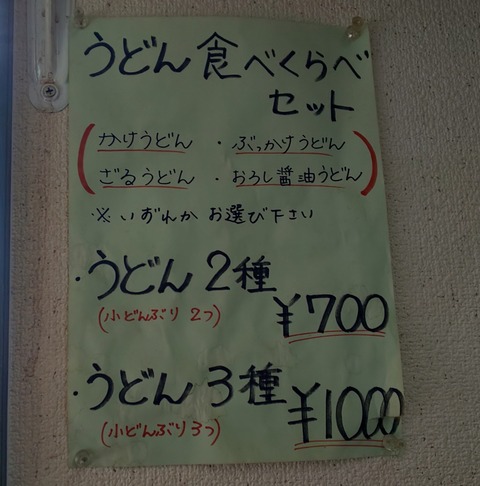 うどん食べくらべ
セット
(かけうどん ・ ぶっかけうどん
ざるうどん ・ おろし醤油うどん)
※いずれか お選び下さい
・うどん2種
(小どんぶり 2つ) ¥700
・うどん 3種
(小どんぶり3つ) ¥1000